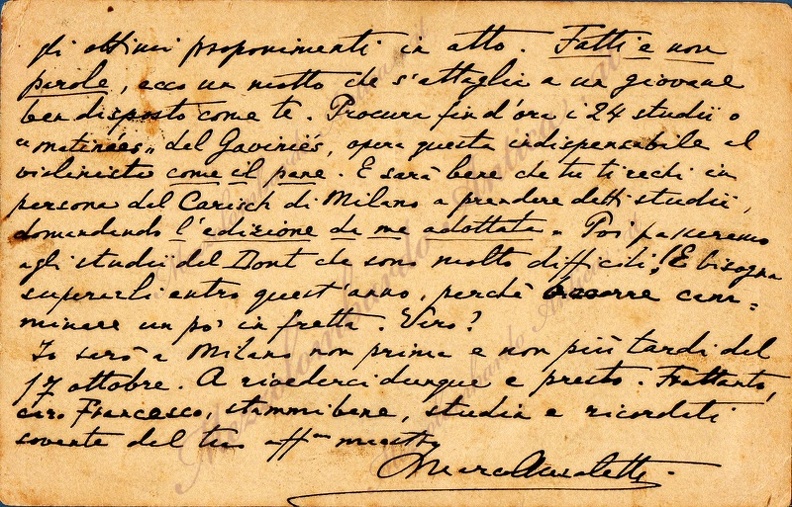 gli ottimi proponimenti in atto. Fatti e non
parole, ecco un motto che s'attaglia a un giovane
ben disposto come te. Procura fin d'ora i 24 studii o
"matinées" del Gaviniés, opera questa indispensabile al
violinista come il pane. E sarà bene che tu ti rechi in
persona dal Carisch di Milano a prendere detti studii,
domandando l'edizione da me adottata. Poi passeremo
agli studii del Dont che sono molto difficili! E bisogna
superarli entro quest'anno, perchè occorre cam=
minare un po' in fretta. Vero?
Io sarò a Milano non prima e non più tardi del
17 ottobre. A rivederci dunque e presto. Frattanto,
caro Francesco, stammi bene, studia e ricordati
sovente del tuo aff.mo maestro
Marco Anzoletti